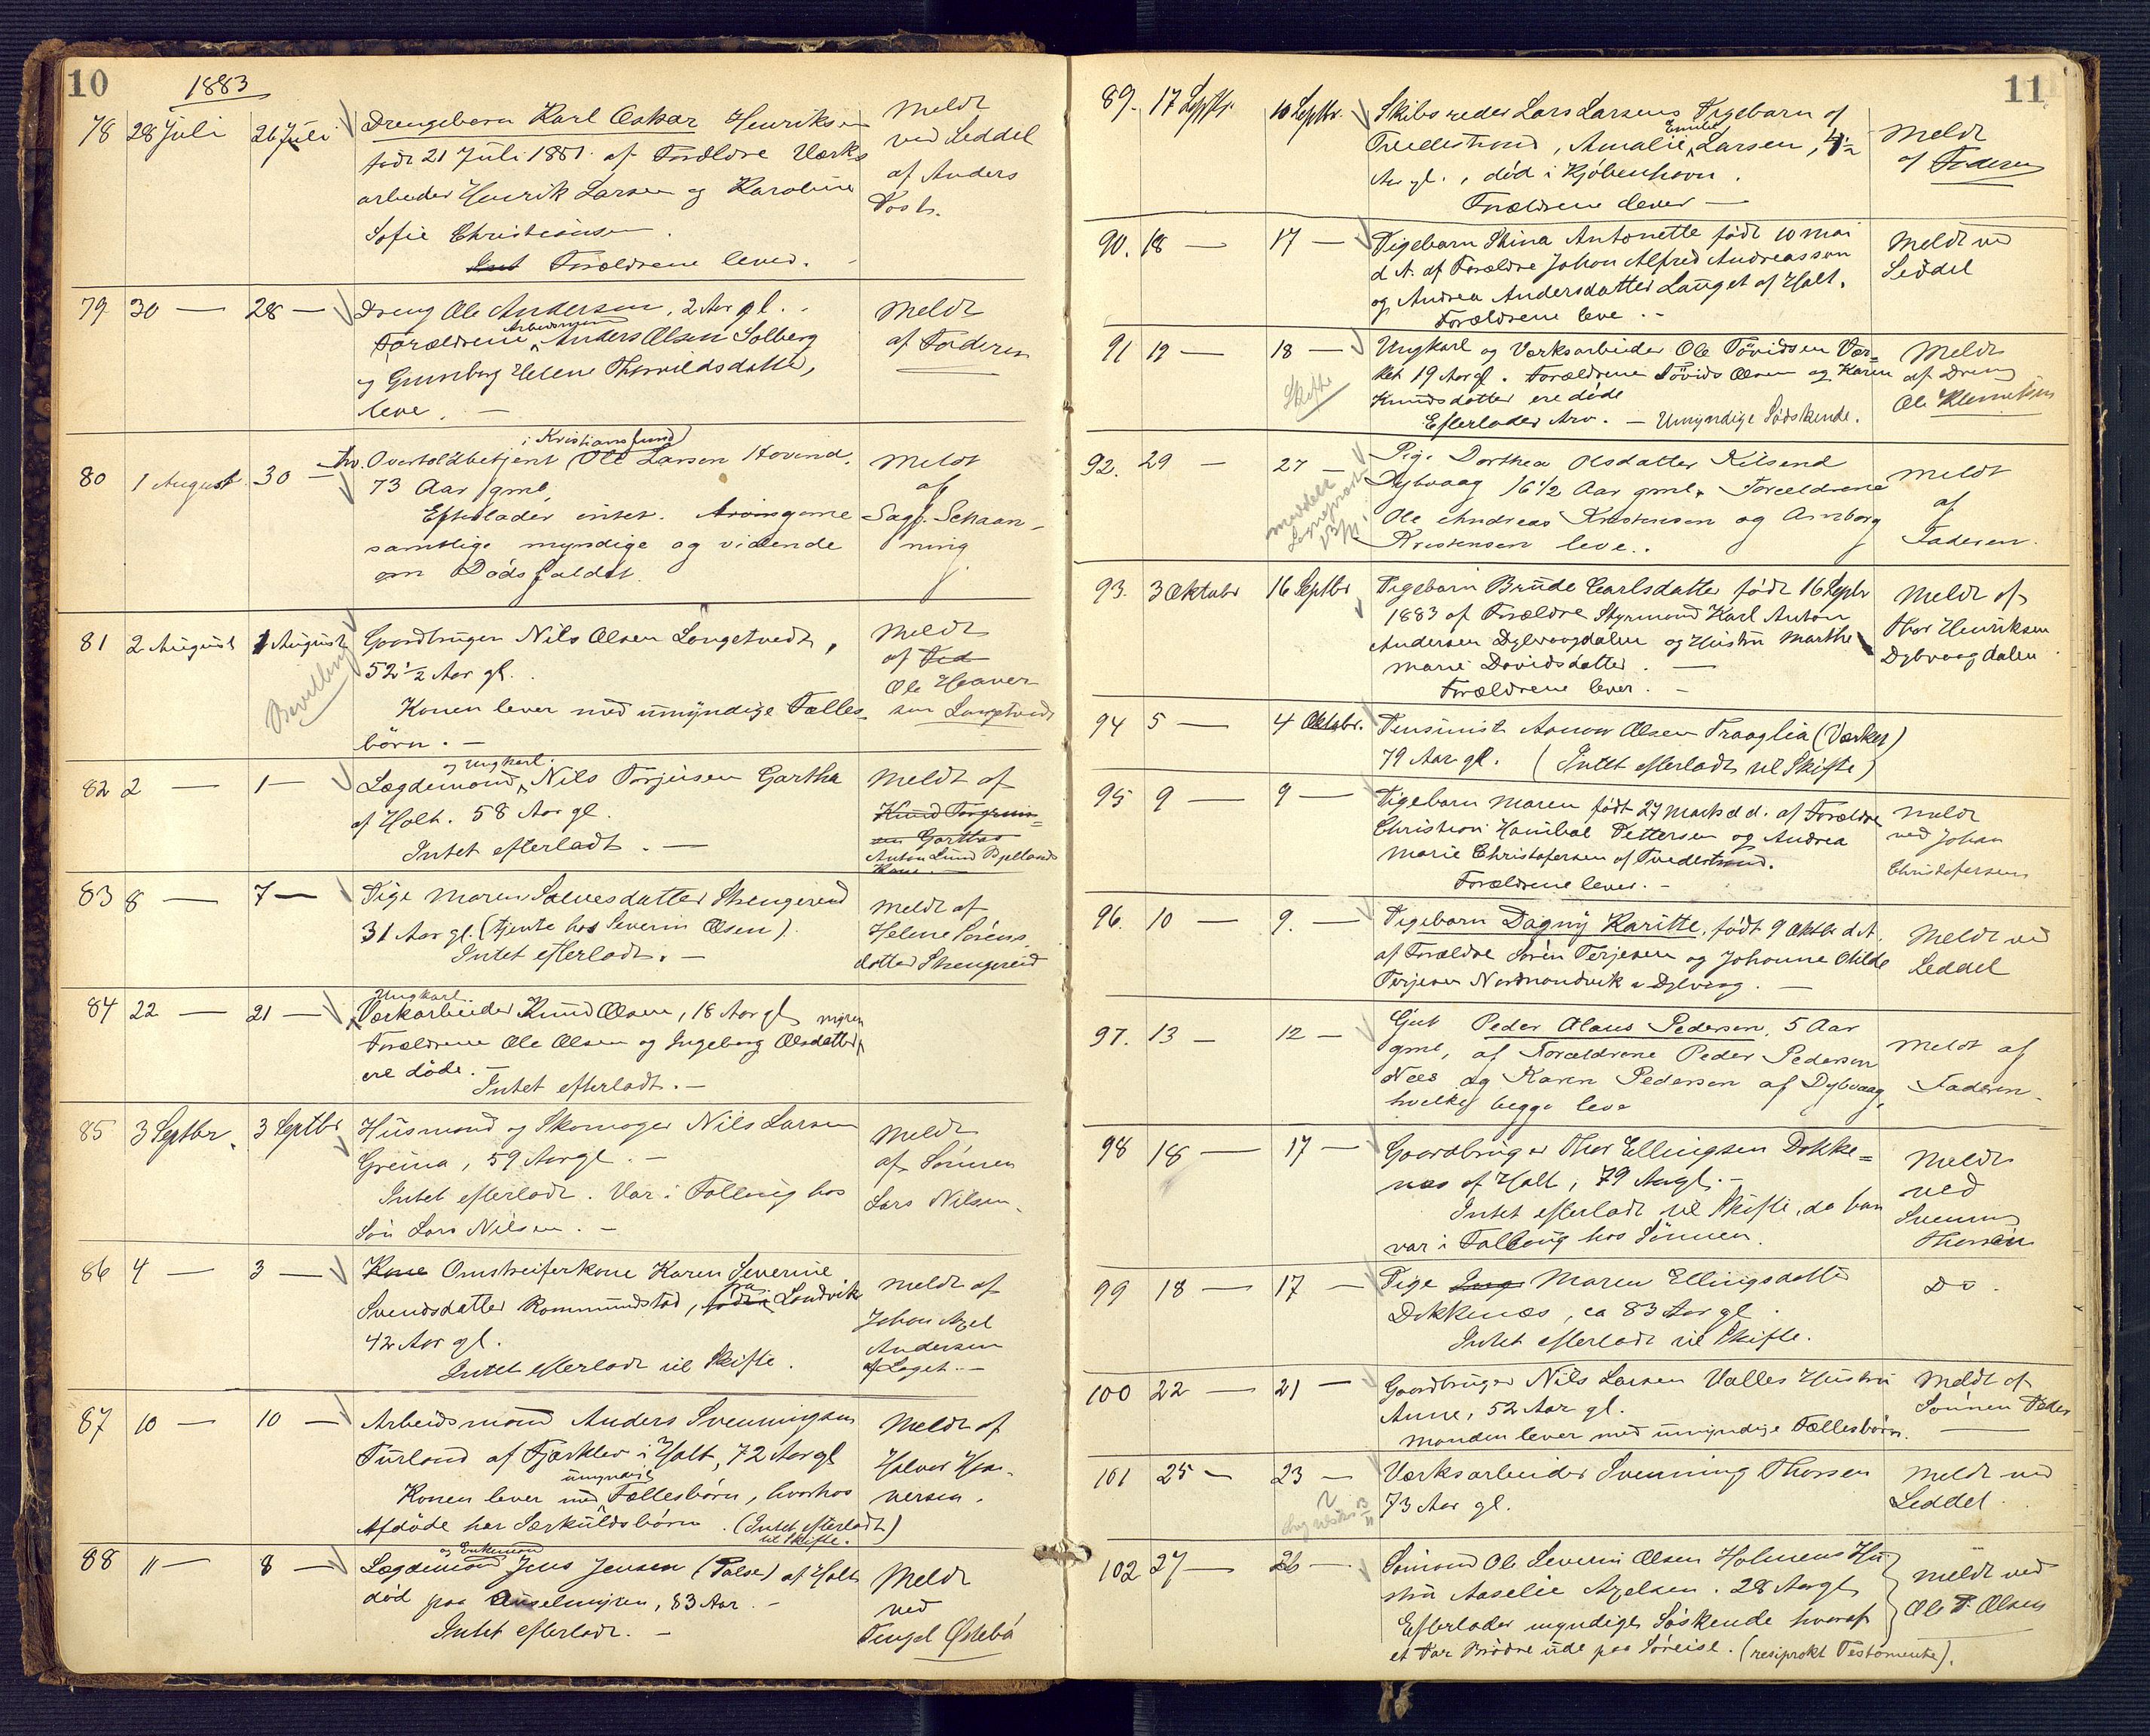 10
1883
78 28 Juli 26 Juli Drengebarn Karl Oskar Henriksen
født 21 Juli 1881 af Forældre Værks
arbeider Henrik Larsen og Karoline
Sofie Christiansen.
Forældrene lever.
Meldt
ved Seddel
af Anders
79 30 — 28 — Dreng Ole Andersen, 2 Aar gl.
Forældrene Arbeidsmand Anders Olsen Solberg
og Gunborg Helene Thorvildsdatter,
leve. —
Meldt
af Faderen
80 1 August 30 — fhv. Overtoldbetjent i Kristianssund Ole Larsen Hovind.
73 Aar gml.
Efterlader intet. Arvingerne
samtlige myndige og vidende
om Dødsfaldet.
Meldt
af
Sagf. Schaan-
ning
81 2 August 1 August Gaardbruger Nils Olsen Longetvedt,
52 1/2 Aar gl.
Konen lever med umyndige Fælles
børn. —
Bevilling
Meldt
af
Ole Haaver
sen Langetvedt
82 2 — 1 — Lægdemand og Ungkarl Nils Torjusen Gartha
af Holt. 58 Aar gl.
Intet efterladt. —
Meldt af
Knud Torgrim=
sen Garthas
Anton Lund Bjellands
Kone. —
83 8 — 7 — Pige Maren Salvesdatter Stengereid
31 Aar gl. (tjente hos Severin Olsen).
Intet efterladt. —
Meldt af
Helene Sørens
datter Stengereid
84 22 — 21 — Ungkarl
Værkarbeider Knud Olsen, 18 Aar gl
Forældrene Ole Olsen og Ingeborg Olsdatter
ere døde. —
Intet efterladt. —
85 3 Septbr. 3 Septbr Husmand og Skomager Nils Larsen
Greina, 59 Aar gl. —
Intet efterladt. Var i Follaug hos
Søn Lars Nilsen. —
Meldt
af Sønnen
Lars Nilsen.
86 4 — 3 — Kone Omstreiferkone Karen Severine
Svendsdatter Rommundstad, fra Landvik
42 Aar gl.
Intet efterladt til Skifte.
Meldt af
Johan Axel
Andersen
af Laget. —
87 10 — 10 — Arbeidsmand Anders Svenningsen
Furland af Fjærklev i Holt, 72 Aar gl
Konen lever med umyndige Fællesbørn, hvorhos
Afdøde har Særkuldsbørn. (Intet efterladt
til Skifte.)
Meldt af
Halvor Haa-
versen.
88 11 — 8 — Lægdemand og Enkemand Jens Jensen (Palse) af Holt
død paa Anselmyren, 83 Aar. —
Intet efterladt. —
Meldt
ved
Tengel Østebø
11
89. 17 Septbr. 10 Septbr. Skibsreder Lars Larsens Pigebarn af
Tvedestrand, Amalie Emilie Larsen, 4 1/2
Aar gl., død i Kjøbenhavn.
Forældrene lever —
Meldt
af Faderen
90. 18 — 17 — Pigebarn Stina Antonette født 10 Mai
d. A. af Forældre Johan Alfred Andreassen
og Andrea Andersdatter Lauget af Holt.
Forældrene leve. —
Meldt ved
Seddel
91 19 — 18 — Ungkarl og Værksarbeider Ole Tøvidsen Vær=
ket 19 Aar gl. Forældrene Tövids Olsen og Karen
Knudsdatter ere døde
Efterlader Arv. — Umyndige Sødskende.
Skifte
Meldt
af Dreng
Ole Klemetsen
92. 29 — 27 — Pige Dorthea Olsdatter Kilsend
Dybvaag 16 1/2 Aar gml. Forældrene
Ole Andreas Kristensen og Amborg
Kristensen leve.
Meldt
af
Faderen.
93. 3 Oktobr 16 Septbr Pigebarn Brude Carlsdatter født 16 Septbr
1883 af Forældre Styrmand Karl Anton
Andersen Dybvaagdalen og Hustru Marthe
Marie Davidsdatter. —
Forældrene lever. —
Meldt af
Thor Henriksen
Dybvaagdalen
94 5 — 4 Oktobr. Pensionist Aanon Olsen Fraaglia (Værket)
79 Aar gl. (Intet efterladt til Skifte)
95 9 — 9 — Pigebarn Maren født 27 Marts d. A. af Forældre
Christian Hanibal Pettersen og Andrea
Marie Christofersen af Tvedestrand.
Forældrene lever. —
Meldt
ved Johan
Christofersen
96. 10 — 9. — Pigebarn Dagny Karitte, født 9 Oktbr d. A.
af Forældre Sørin Terjesen og Johanne Otilde
Terjesen Nordmandvik i Dybvaag. —
Meldt ved
Seddel
97. 13 — 12 — Gut Peder Olaus Pedersen, 5 Aar
gml, af Forældrene Peder Pedersen
Næs og Karen Pedersen af Dybvaag,
hvilke begge leve
Meldt af
Faderen.
98 18 — 17 — Gaardbruger Thor Ellingsen Dokke=
næs af Holt, 79 Aar gl. —
Intet efterladt til Skifte, da han
var i Follaug hos Sønnen.
Meldt
ved
Svenning
Thorsen
99 18 — 17 — Pige Maren Ellingsdatter
Dokkenæs, ca 83 Aar gl.
Intet efterladt til Skifte.
Do.
100 22 — 21 — Gaardbruger Nils Larsen Valles Hustru
Anne, 52 Aar gl.
Manden lever med umyndige Fællesbørn.
Meldt af
Sønnen Peder
101 25 — 23 — Værksarbeider Svenning Thorsen
73 Aar gl.
Meldt ved
Seddel.
102 27 — 26 — Sømand Ole Severin Olsen Holmens Hu-
stru Aaselie Axelsen. 28 Aar gl
Efterlader myndige Søskende hvoraf
et Par Brødre ude paa Søreise. (resiprokt Testamente).
Meldt ved
Ole T. Olsen